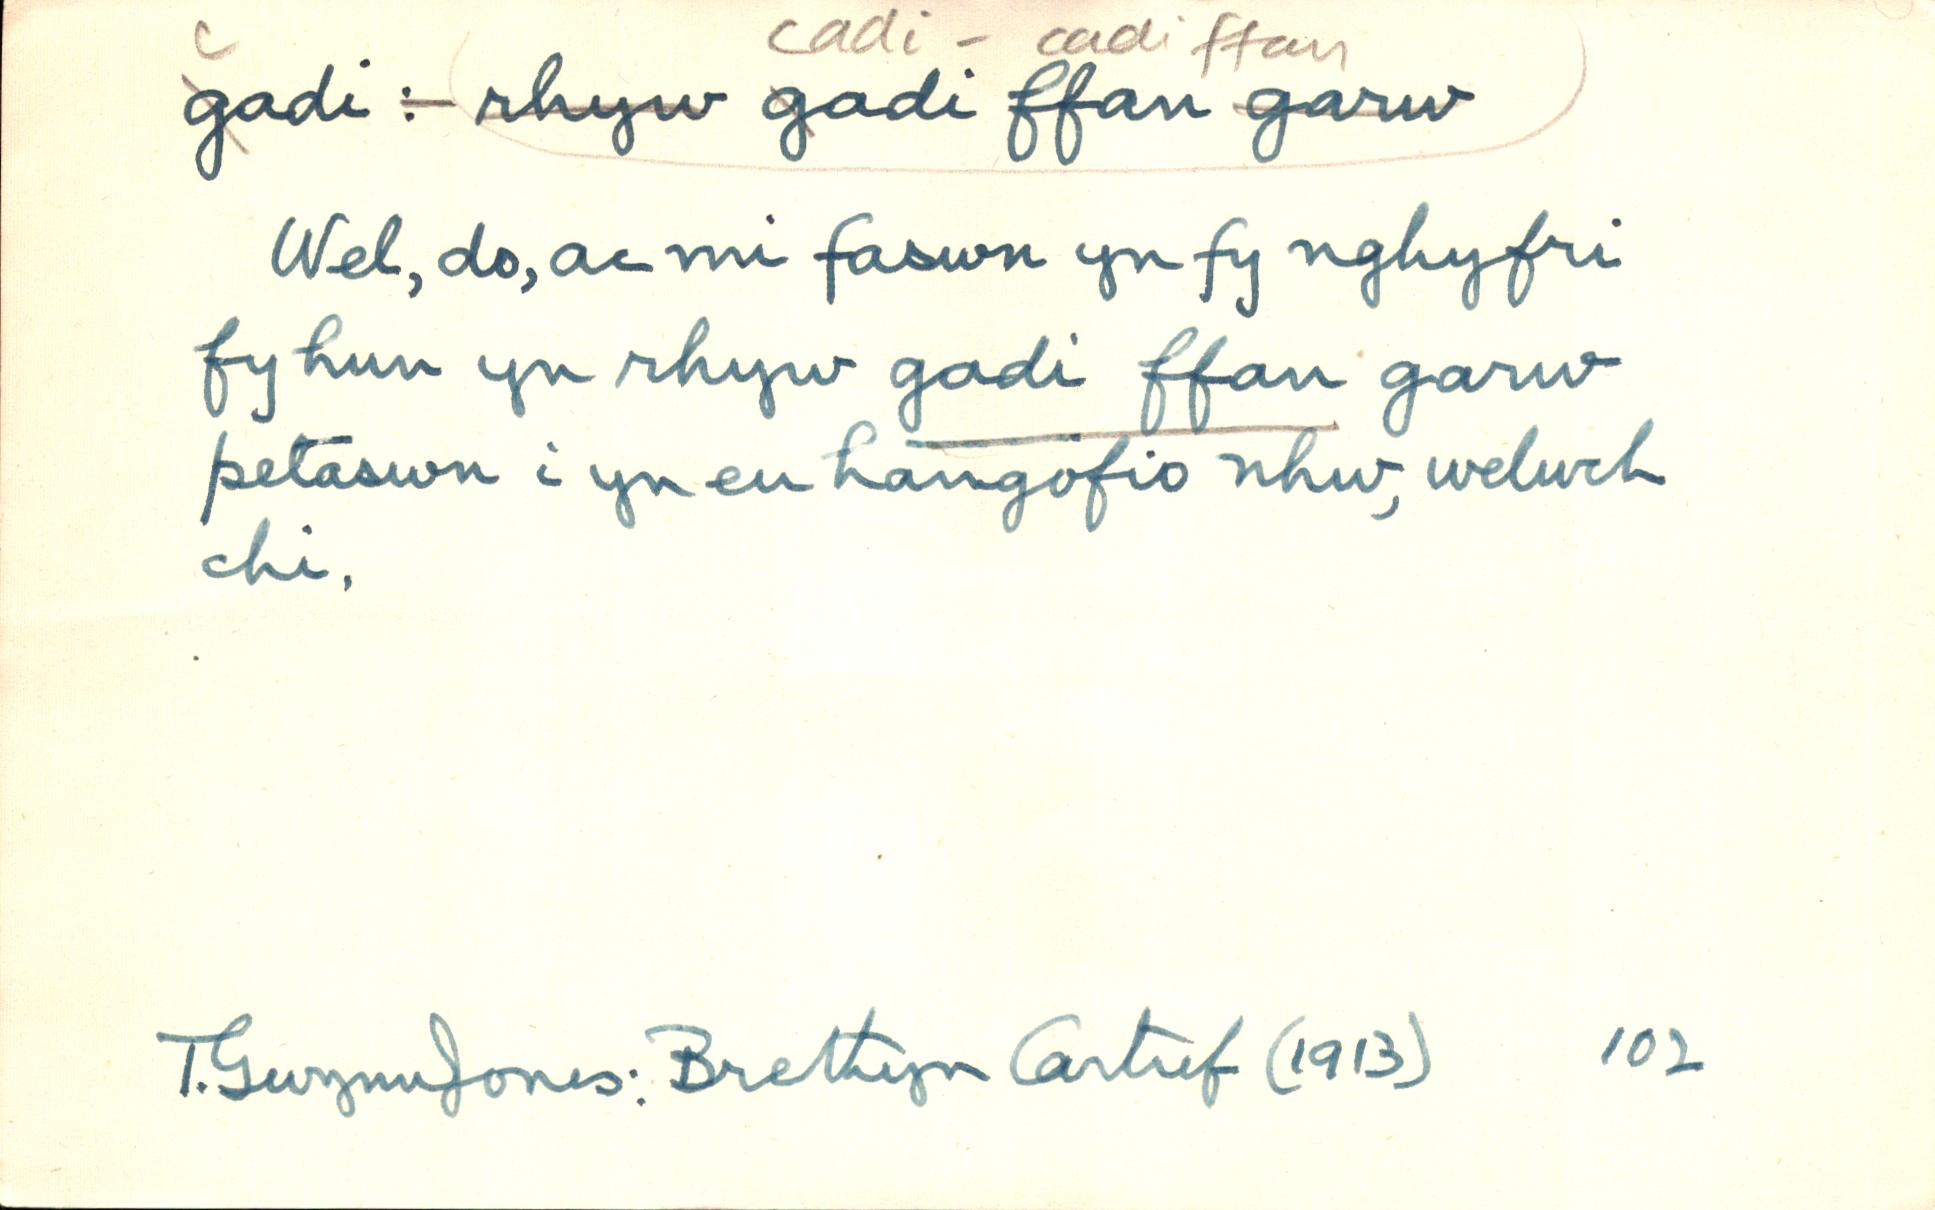 c
cadi - cadi ffan
gadi :- rhyw gadi ffan garw
Wel, do, ac mi faswn yn fy nghyfri
fy hun yn rhyw gadi ffan garw
petaswn i yn eu hangofio nhw, welwch
chi.
T. Gwynn Jones: Brethyn Cartref (1913) 102